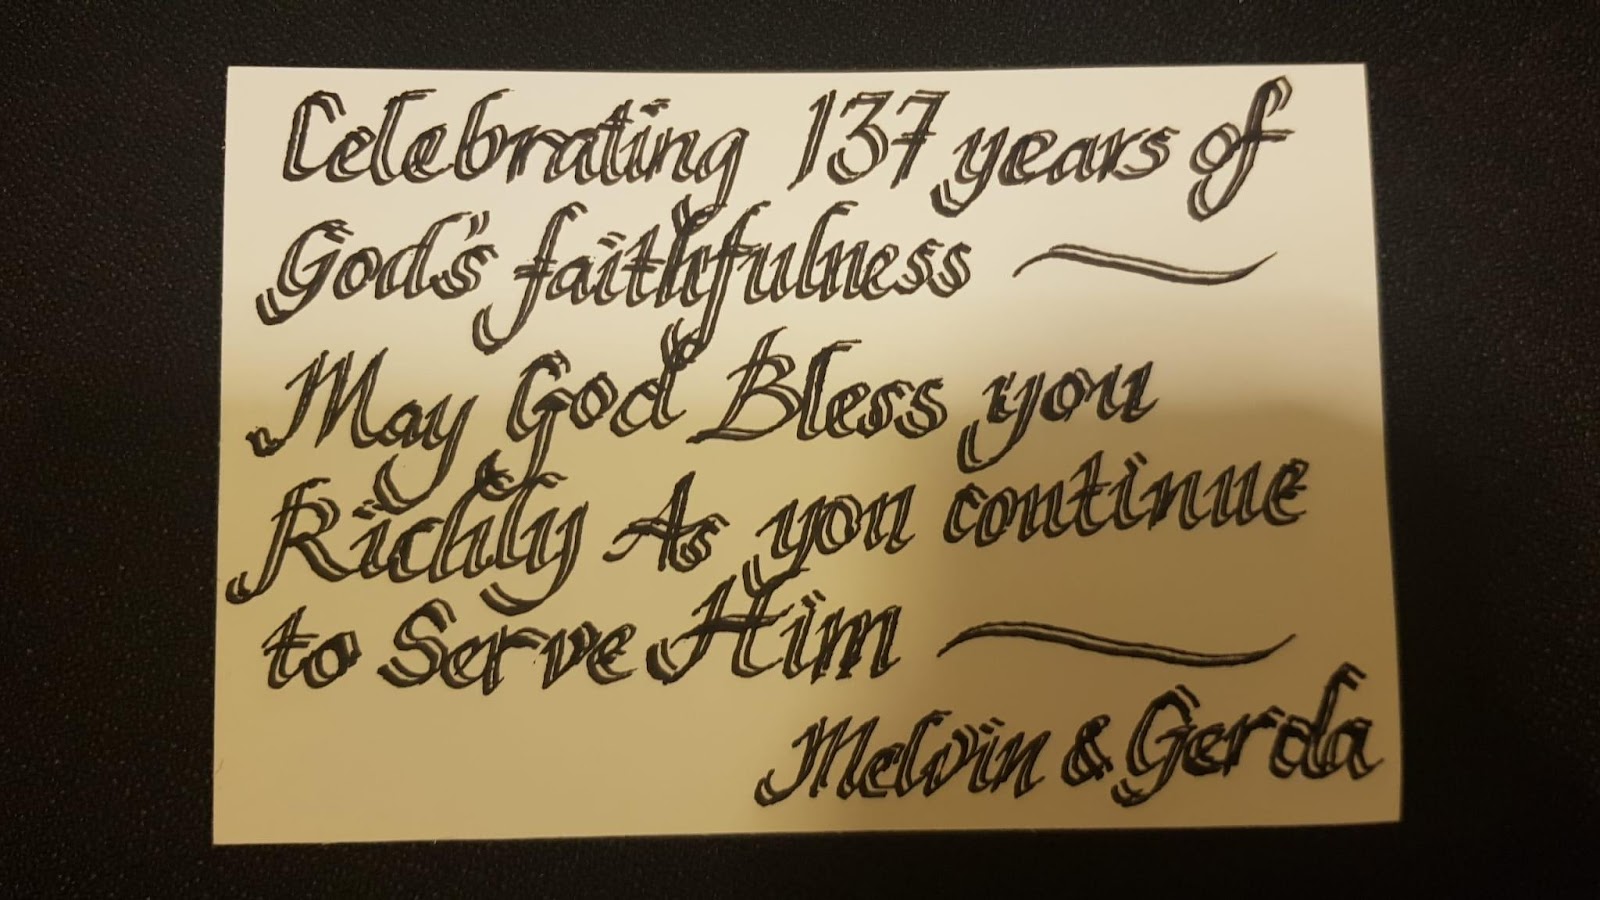 Celebrating 137 years of
God's faithfulness
May God Bless you
Richly As you continue
to Serve Him
Melvin & Gerda